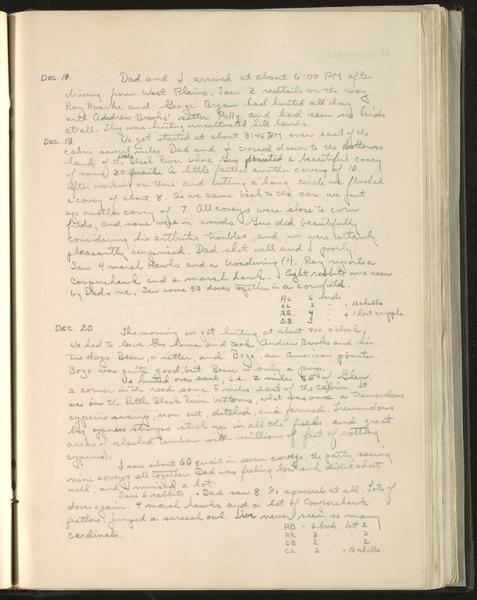 Dec. 18. Dad and I arrived at about 6:00 PM after
driving from West Plains. Saw 2 redtails on the way.
Ray Roarke and George Bryan had hunted all day
with Andrew Brooks' setter Polly, and had seen no birds
at all. They were hunting uncultivated hill lands.
Dec. 19. We got started at about 8:45 AM, over east of the
cabin several miles. Dad and I crossed down to the bottoms
land of the Little Black River where Gus pointed a beautiful covey
of some 20 quail. A little farther another covey of 10.
After working on there and cutting a long circle we flushed
a covey of about 8. As we came back to the car we put
up another covey of 7. All coveys were close to corn
fields, and none were in woods. Gus did beautifully
considering his arthritis troubles, and we were certainly
pleasantly surprised. Dad shot well and I poorly.
Saw 4 marsh Hawks and a broadwing (?). Ray reports a
Coopershawk and a marsh hawk. Eight rabbits were seen
by Dad & me. Saw some 50 doves together in a cornfield.
AL 6 birds
CL 2 - 10 shells
RR 4 + 1 lost cripple
GB 3
Dec. 20 This morning we got hunting at about 9:00 o'clock.
We had to leave Gus home and took Andrew Brooks and his
two dogs Beau, a setter, and Bozo, an American pointer.
Bozo was quite good, but Beau is only a pup.
We hunted over east, i.e. 2 miles of Glen,
a corner in the road some 5 miles east of the cabin. It
was in the Little Black River bottoms, what was once a tremendous
cypress swamp, now cut, ditched, and farmed. Tremendous
big cypress stumps stick up in all the fields, and great
areas of slashed timber with millions of feet of rotting
cypress.
I saw about 60 quail in seven coveys, the party seeing
nine coveys all together. Dad was feeling low and didn't shoot
well, and I missed a lot.
Saw 6 rabbits, Dad saw 8. No squirrels at all. Lots of
doves again. 4 marsh hawks and a lot of Coopershawk
feathers. Jumped a screech owl. I've never seen so many
cardinals.
AB - 6 birds, lost 2
RR 8 - 3
GB 2 - 2
CL - 2 - 15 shells